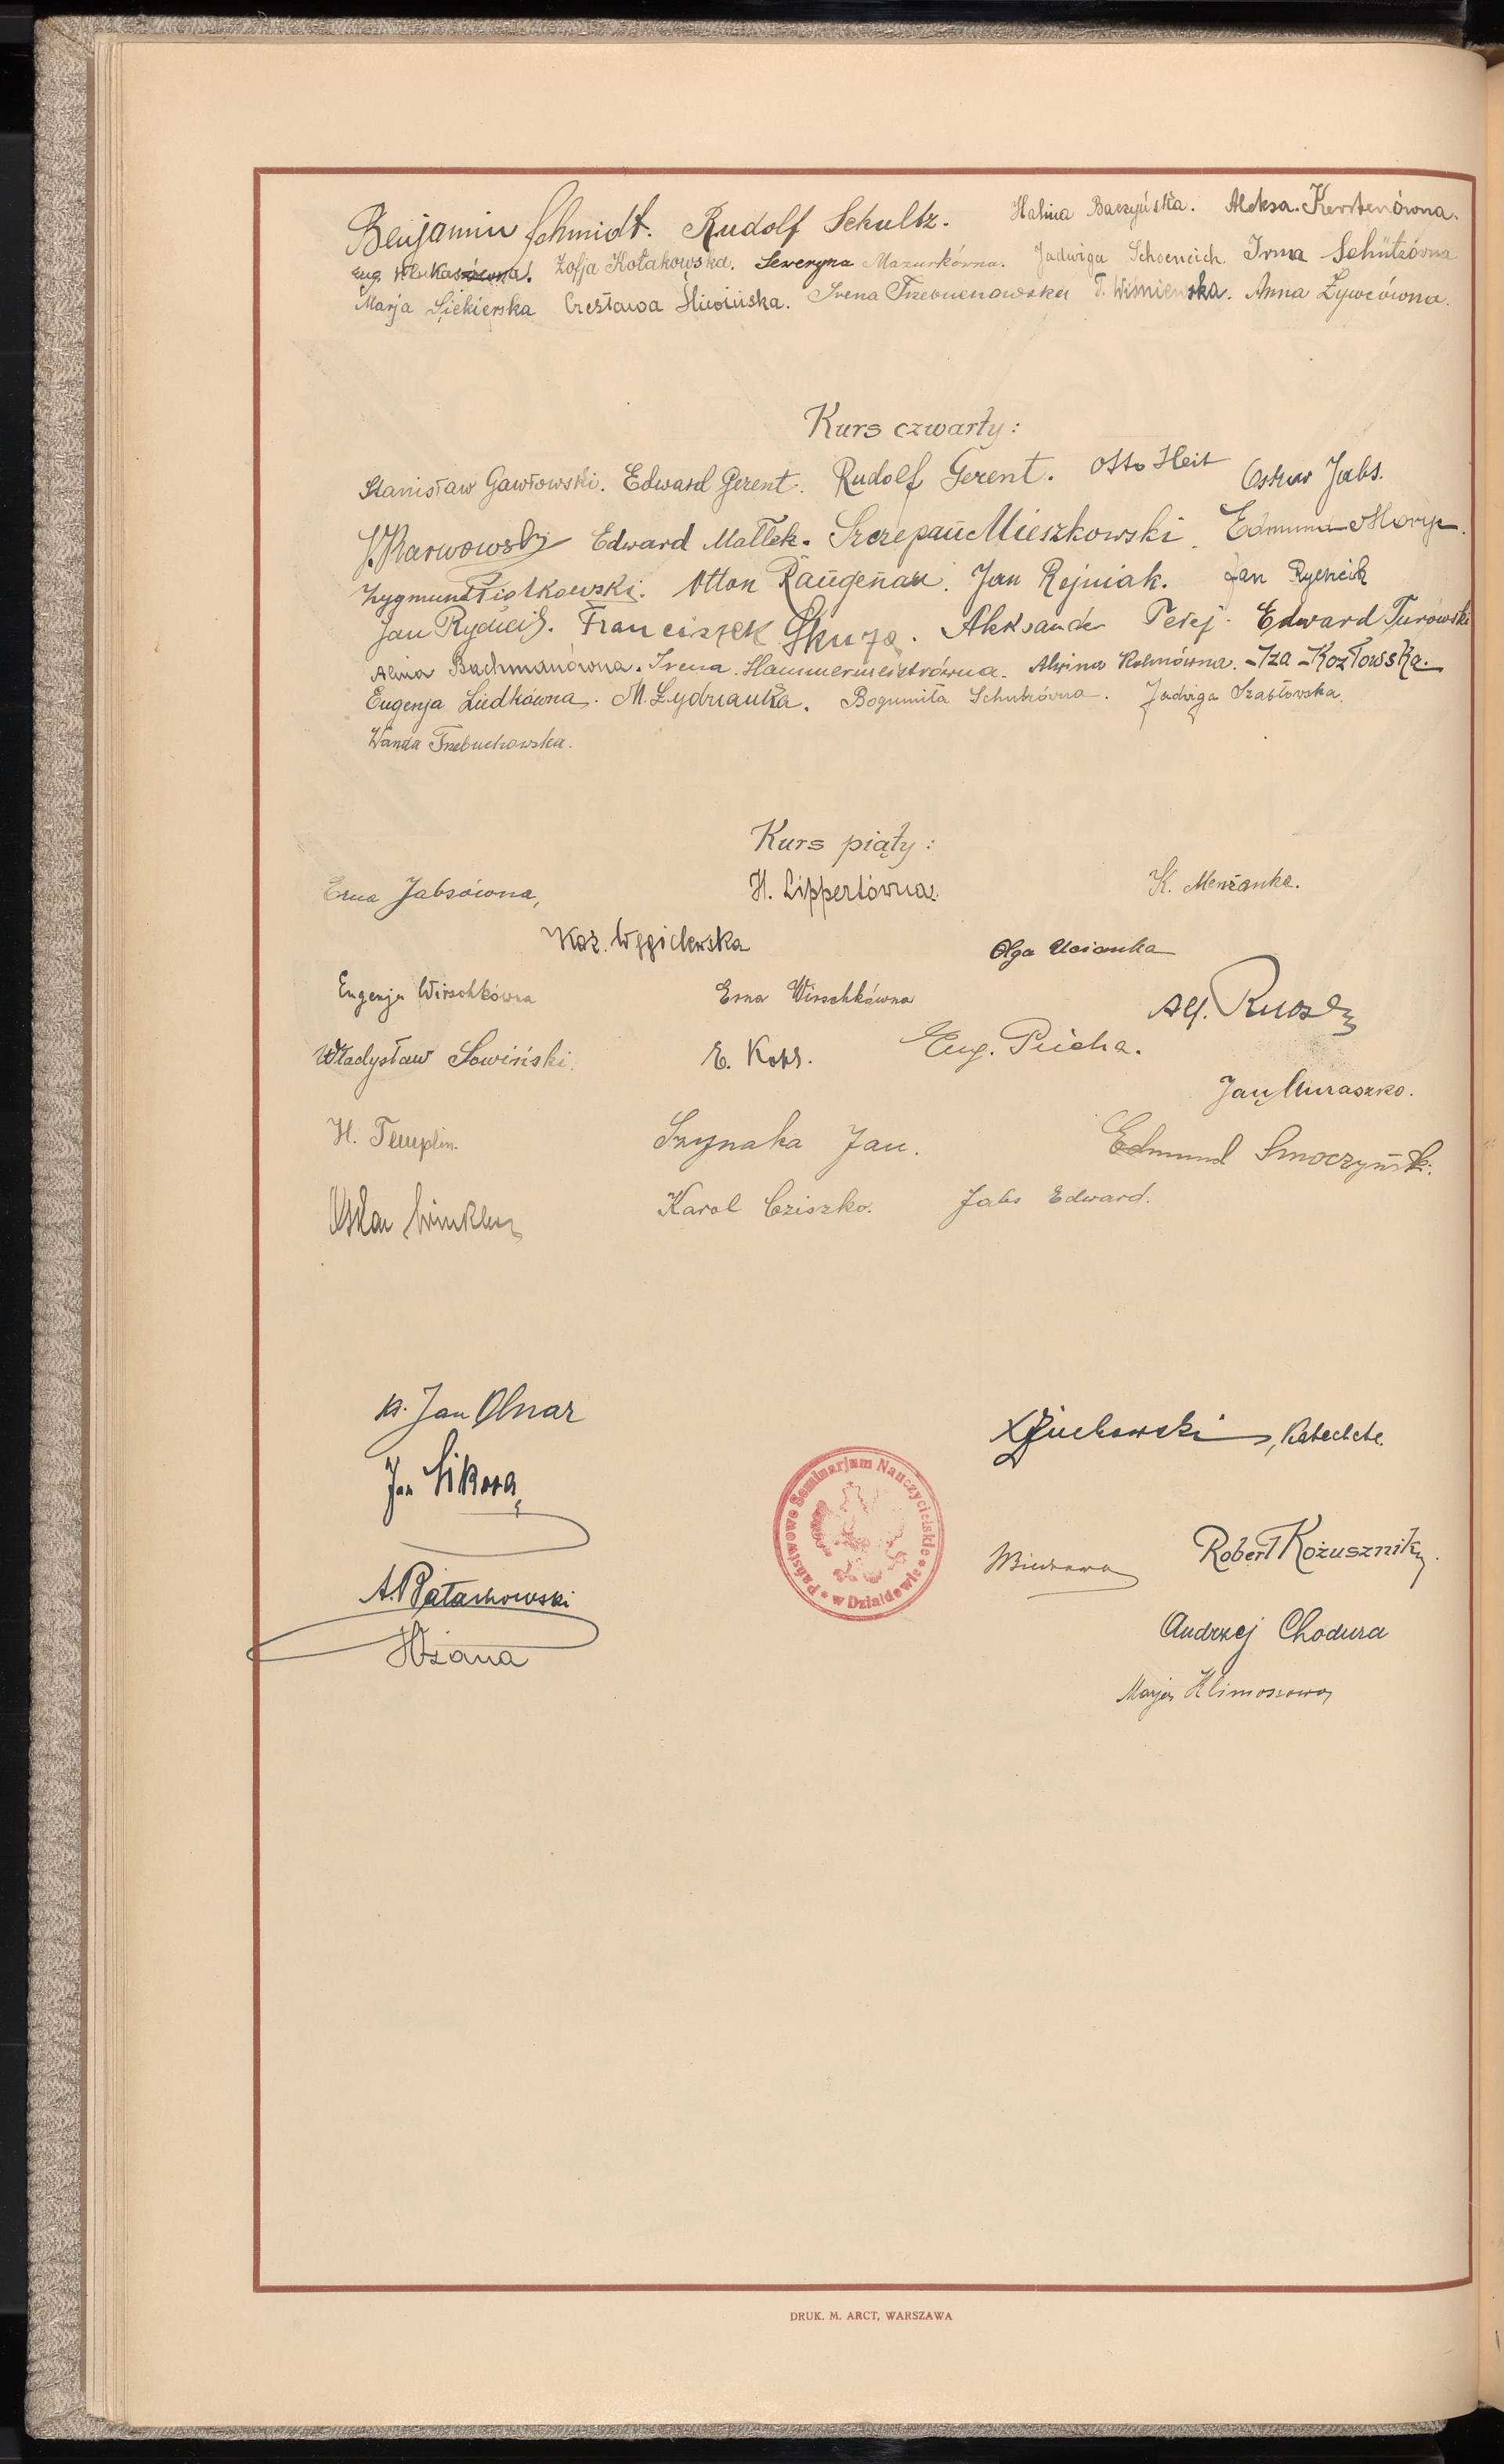 Benjamin Schmidt. Rudolf Schultz. Halina Baczyńska. Aleksa. Kerstenówna.
Eug. Zofja Kołakowska. Seweryna Mazurkówna. Jadwiga Schoeneich. Irma Schützówna
Marja Siekierska Czesława Śliwińska. Irena Trzebuchowska T. Wiśniewska. Anna Żywcówna.
Kurs czwarty:
Stanisław Gawłowski. Edward Gerent. Rudolf Gerent. Otto Heit Oskar Jabs.
J. Karwowski Edward Małłek. Szczepan Mieszkowski. Edmund Moryc.
Zygmunt Piotkowski. Otton Raugenau. Jan Rejniak. Jan Rychcik
Jan Franciszek Skuza. Aleksander Edward Turowski
Alina Bachmanówna. Irena Hammermeistrówna. Alwina Kolmówna. Iza Kozłowska.
Eugenja Liedkówna. M. Żydzianka. Bogumiła Schulzówna. Jadwiga Szabłowska.
Wanda Trzebuchowska.
Kurs piąty:
Erna Jabsówna, H. Lippertówna. K. Menżanka.
Kaz. Węgielewska Olga Uciońska
Eugenja Wirschkówna Erna Wirschkówna Alf.
Władysław Sowiński. E. Kohs. Eug. Pucha.
Jan Muraszko.
H. Templin. Szynaka Jan. Edmund Smoczyński.
Oskar Winkler Karol Cziszko. Jabs Edward.
Jan Olszar X. Żuchowski, Katecheta.
Jan Sikora
Państwowe Seminarjum Nauczycielskie * w Działdowie *
Robert Kożusznik
A. Bałachowski
Andrzej Chodura
Marja Klimoszowa
DRUK. M. ARCT, WARSZAWA